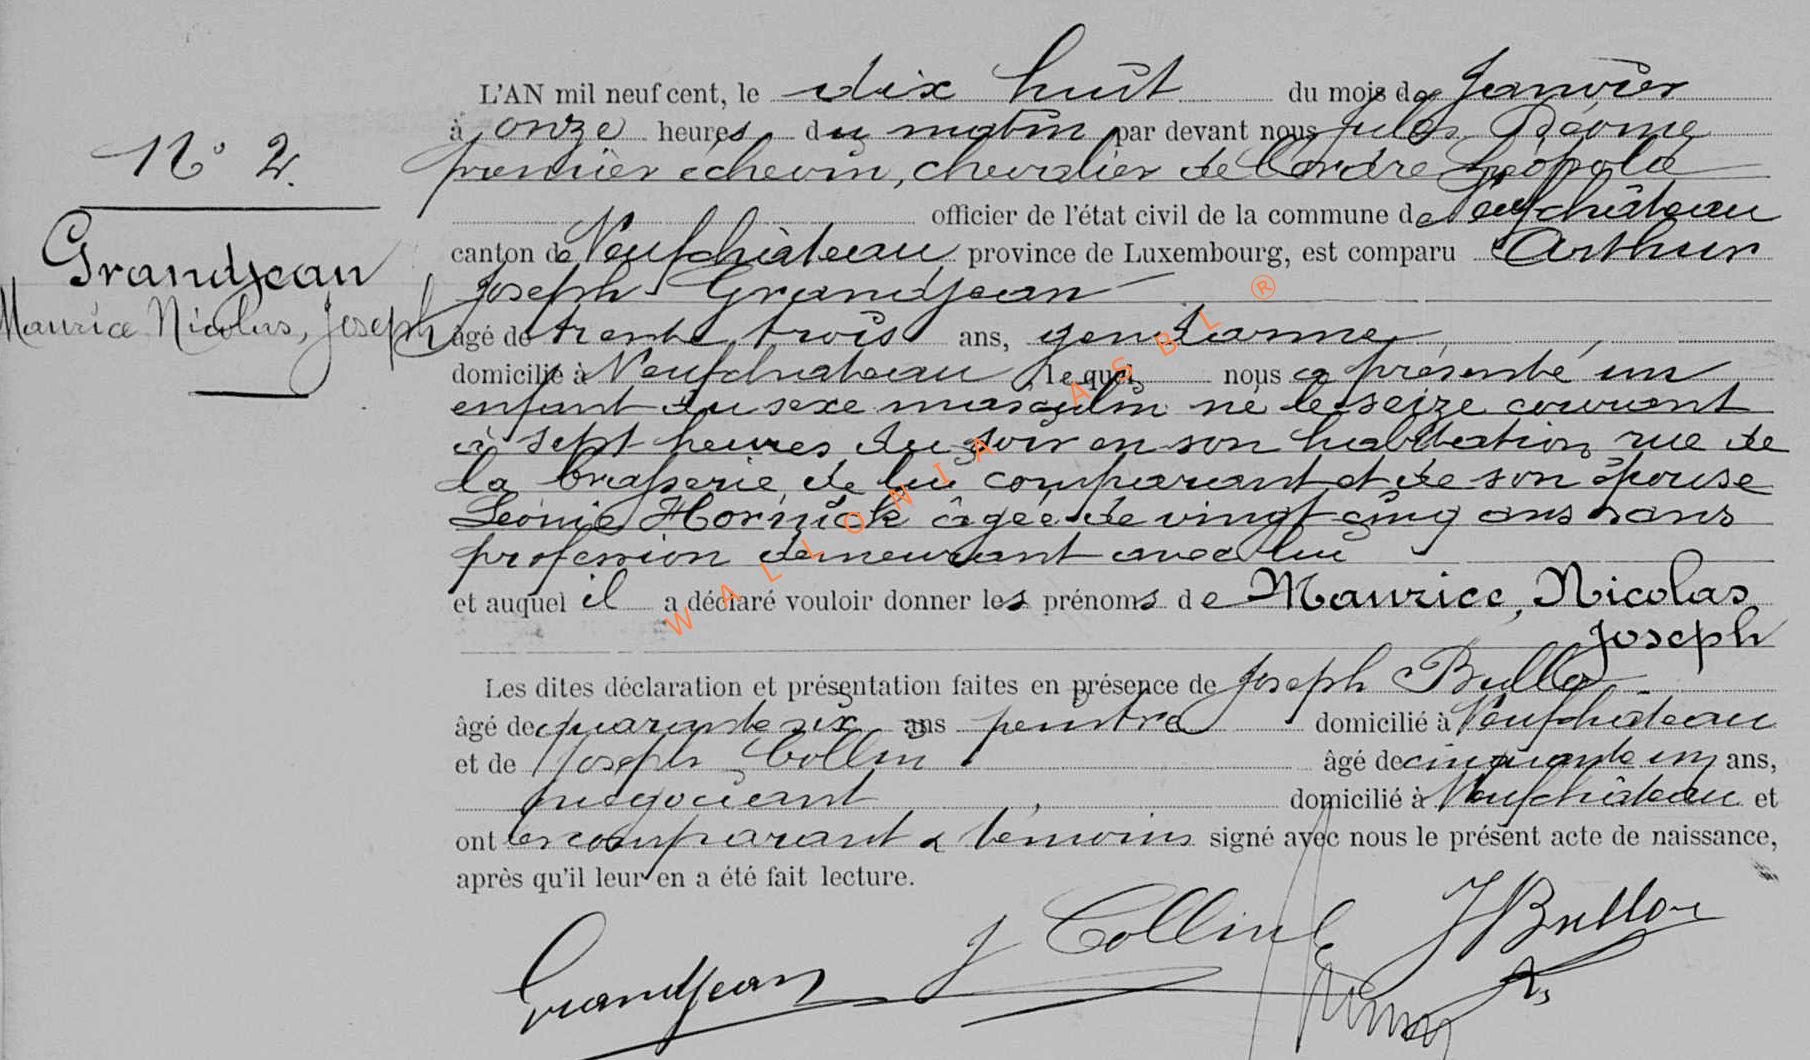 N° 2.
Grandjean
Maurice Nicolas, Joseph
L'AN mil neuf cent, le dix huit du mois de Janvier
à onze heures du matin par devant nous Jules Réome
premier échevin, chevalier de l'ordre Léopold
officier de l'état civil de la commune de Neufchâteau
canton de Neufchâteau, province de Luxembourg, est comparu Arthur
Joseph Grandjean
âgé de trente trois ans, gendarme
domicilié à Neufchateau, lequel nous a présenté un
enfant du sexe masculin né le seize courant
à sept heures du soir en son habitation rue de
la brasserie, de lui comparant et de son épouse
Léonie Hornick âgée de vingt cinq ans sans
profession demeurant avec lui
et auquel il a déclaré vouloir donner les prénoms de Maurice, Nicolas
Joseph
Les dites déclaration et présentation faites en présence de Joseph
âgé de quarante six ans peintre domicilié à Neufchateau
et de Joseph Collin âgé de cinquante un ans,
négociant, domicilié à Neufchâteau et
ont les comparant & témoins signé avec nous le présent acte de naissance,
après qu'il leur en a été fait lecture.
Grandjean J Collin
WALLONIA ASBL ®